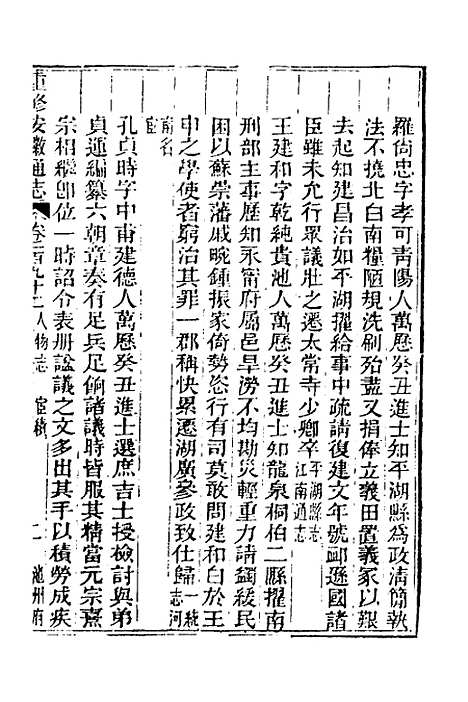 羅尚忠字孝可靑陽人萬曆癸丑進士知平湖縣爲政清簡執
法不撓北白南糧陋規洗刷殆盡又捐俸立義田置義冢以艱
去起知建昌治如平湖擢給事中疏請復建文年號卹遜國諸
臣雖未允行衆議壯之遷太常寺少卿卒平湖縣志江南通志
王建和字乾純貴池人萬曆癸丑進士知龍泉桐柏二縣擢南
刑部主事歷知永甯府屬邑旱澇不均勘災輕重力請蠲緩民
困以蘇崇藩戚畹鍾振家倚勢恣行有司莫敢問建和白於王
申之學使者窮治其罪一郡稱快累遷湖廣參政致仕歸一統志河
南名宦
孔貞時字中甫建德人萬曆癸丑進士選庶吉士授檢討與弟
貞運編纂六朝章奏有足兵足餉諸議時皆服其精當元宗熹
宗相繼卽位一時詔令表册諡議之文多出其手以積勞成疾
重修安徽通志 卷二百九十二 人物志 宦績 二 池州府